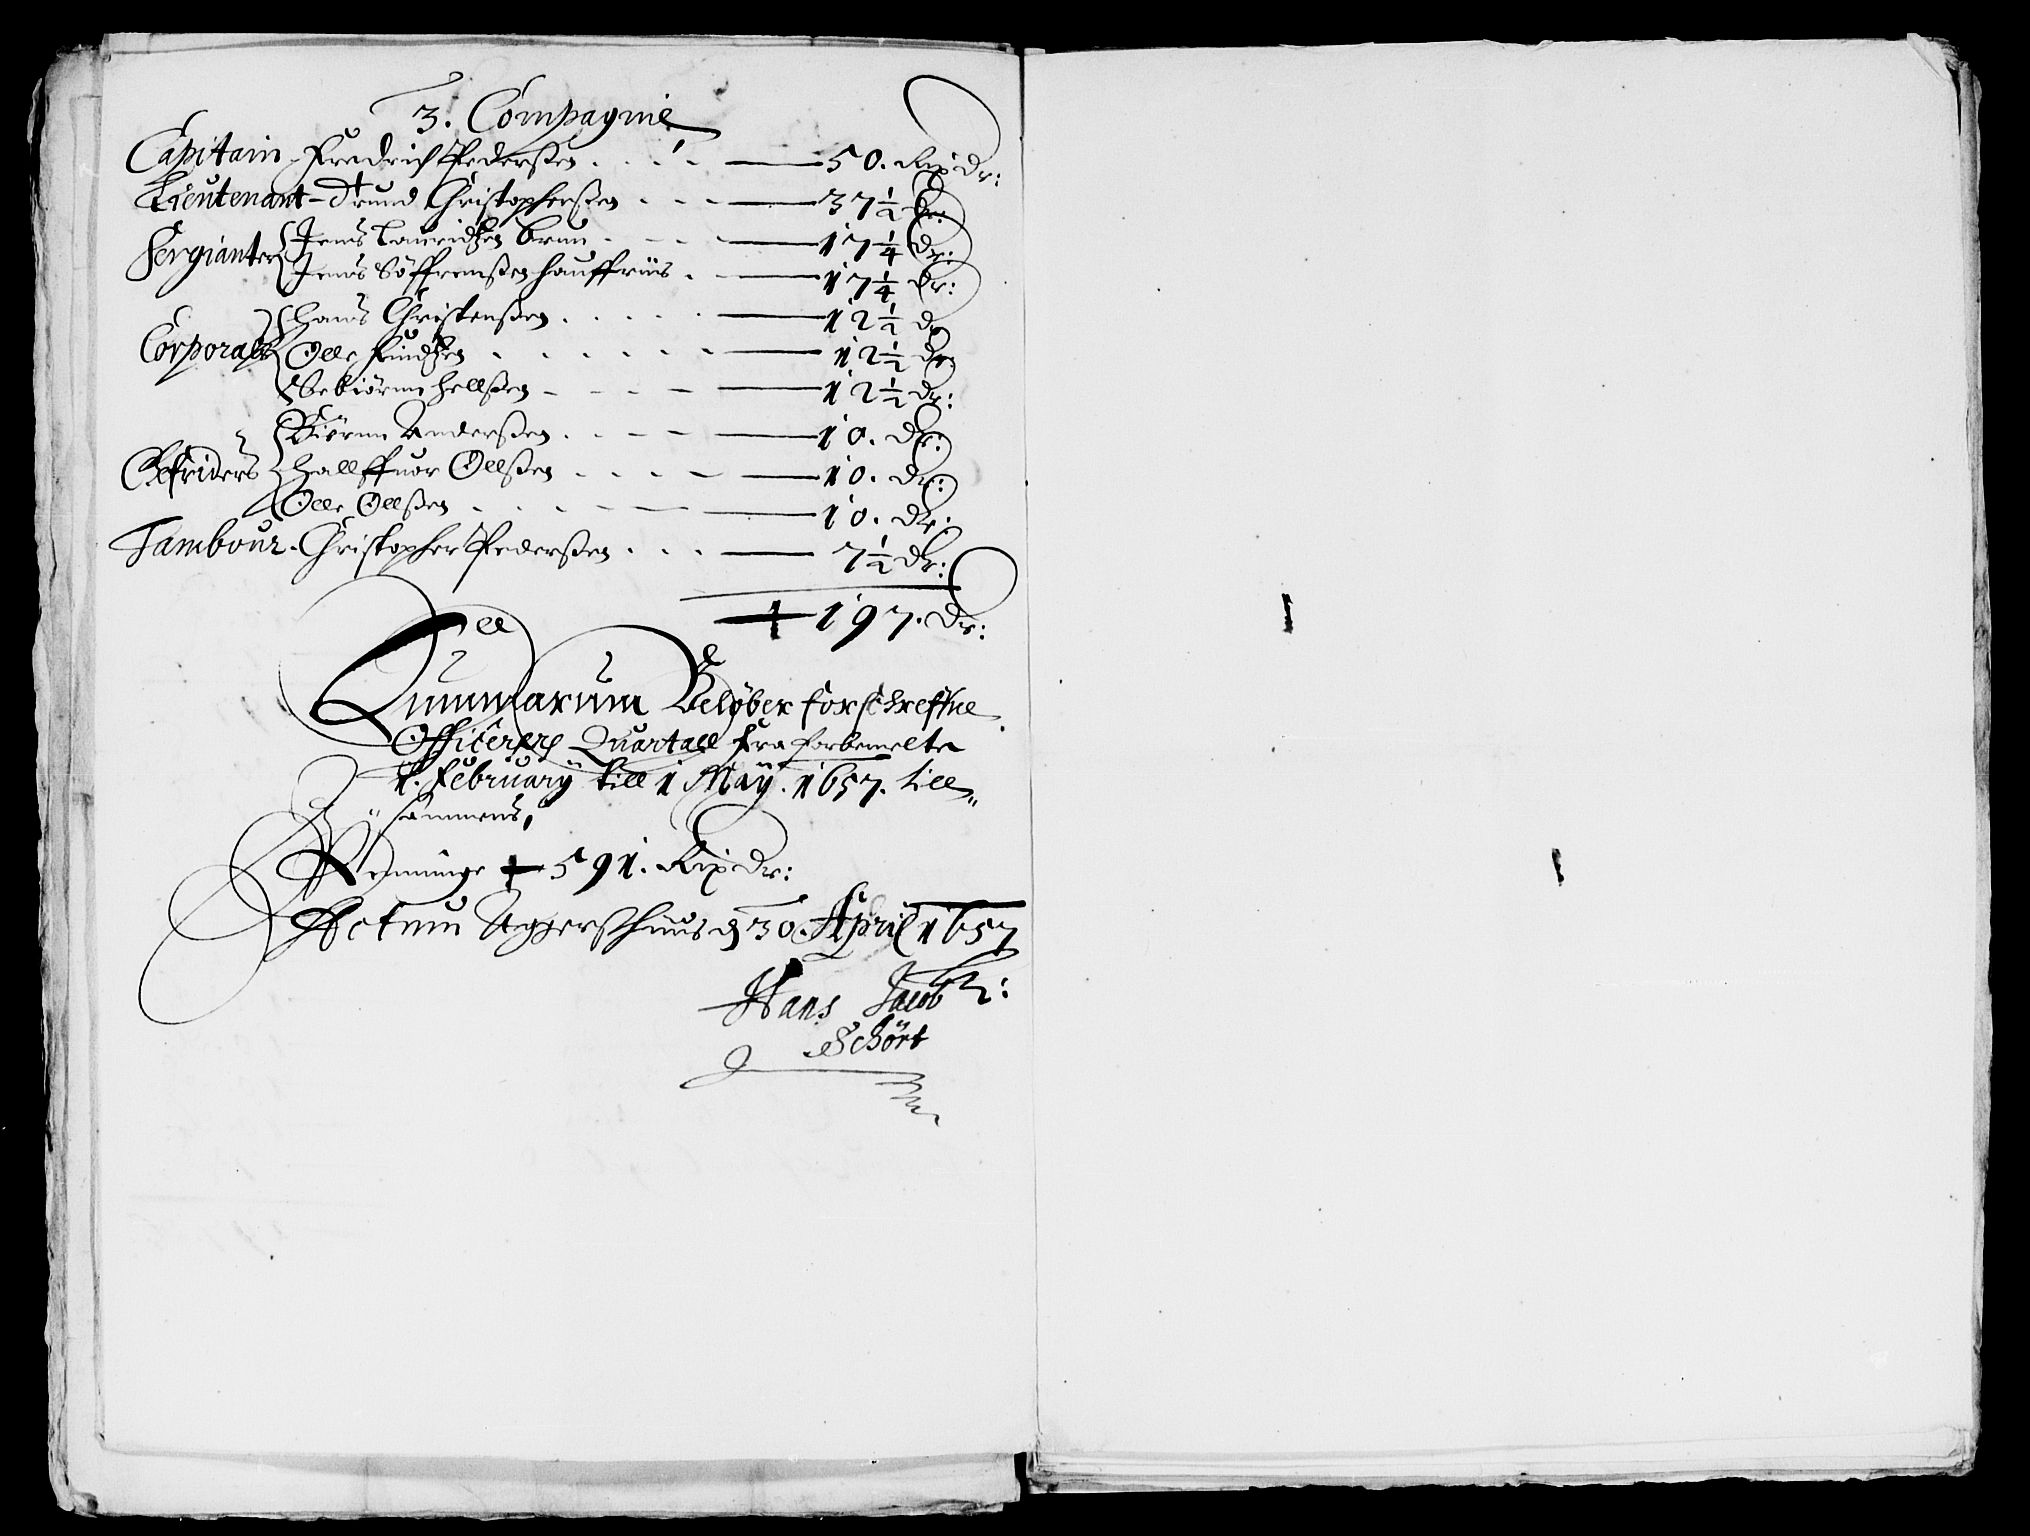 3. Compagnie
Capitain - Fredrich Pederßen . . . — 50. Rix dr:
Lieutenant - Trund Christopherßen . . . — 37 1/2 dr:
Sergianter Jens Lauridtzen Brun . . . — 17 1/4 dr:
Jens Søffrensßen Hauffriis . — 17 1/4 dr:
Corporals Hans Christenßen . . . . — 12 1/2 dr
Olle Findtzen . . . . . . — 12 1/2 dr:
Kield­
Torbiørn Hellßen - - - - — 12 1/2 dr:
Biørnn Anderßen . . . - — 10. dr:
Gefriders Hallffuor Ollßen . . . . — 10. dr:
Olle Ollßen . . . . — 10. dr:
Tambour - Christopher Pederßen . . . — 7 1/2 dr:
197. dr:
Summarum Beløber forschreffne
Officerers Quartall fra forbemelte
1. February till 1 Maÿ. 1657. till
sammens,
Penninge 591. Rix dr:
Actum Aggerßhuus d 30. April 1657
Hans Jacob
Schört